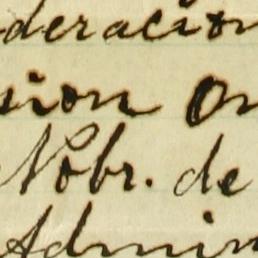 deracion
sion On
Nobr. de
Admin